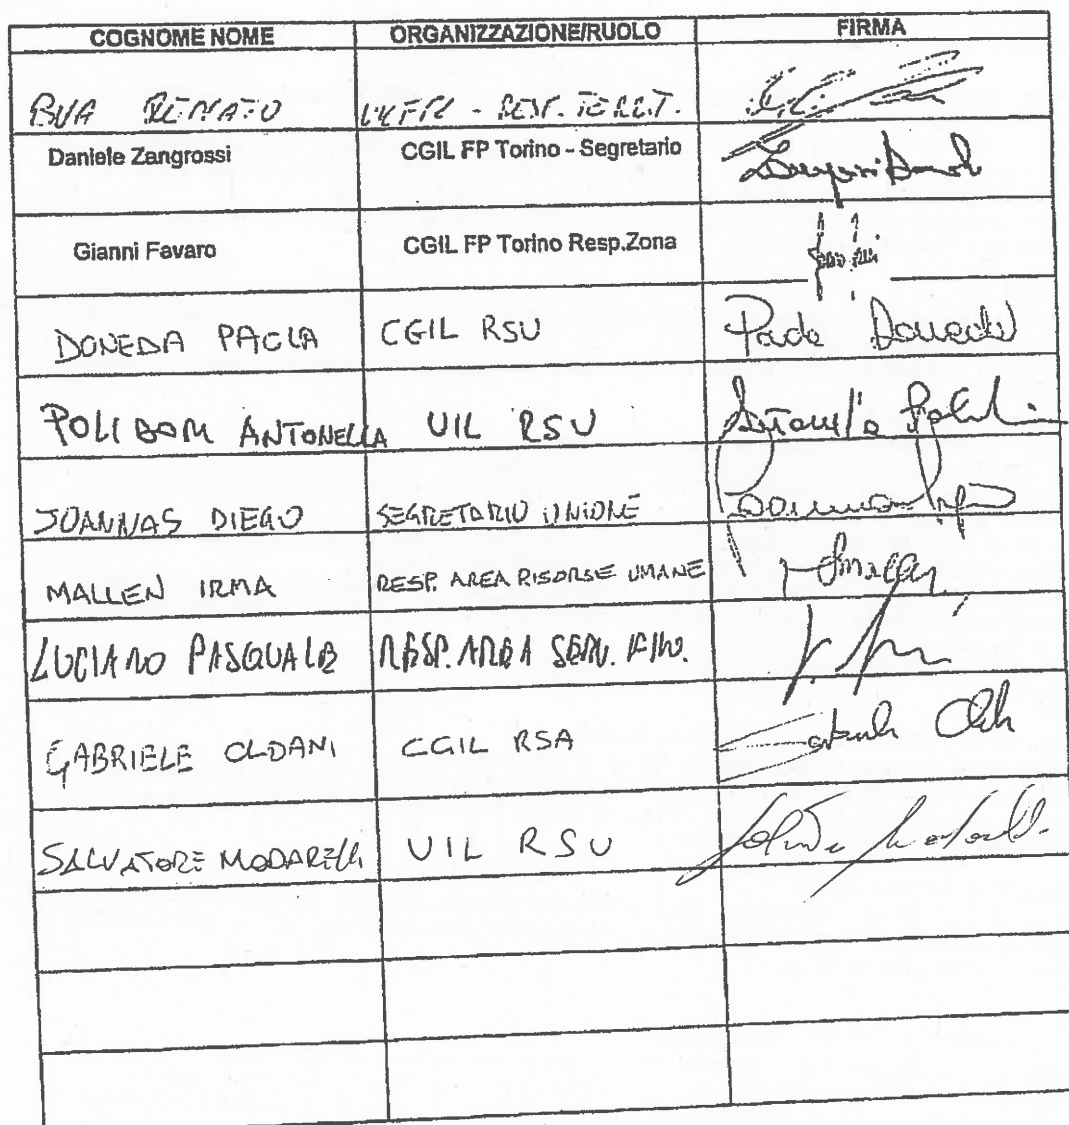 COGNOME NOME ORGANIZZAZIONE/RUOLO FIRMA
RESP. TERRIT.
Daniele Zangrossi CGIL FP Torino - Segretario
Gianni Favaro CGIL FP Torino Resp.Zona
DONEDA PAOLA CGIL RSU Paola Doneda
ANTONELLA UIL RSU Antonella
JOANNAS DIEGO SEGRETARIO UNIONE
MALLEN IRMA RESP. AREA RISORSE UMANE
LUCIANO PASQUALE RESP. AREA SERV. FIN.
GABRIELE OLDANI CGIL RSA
SALVATORE MODARELLI UIL RSU